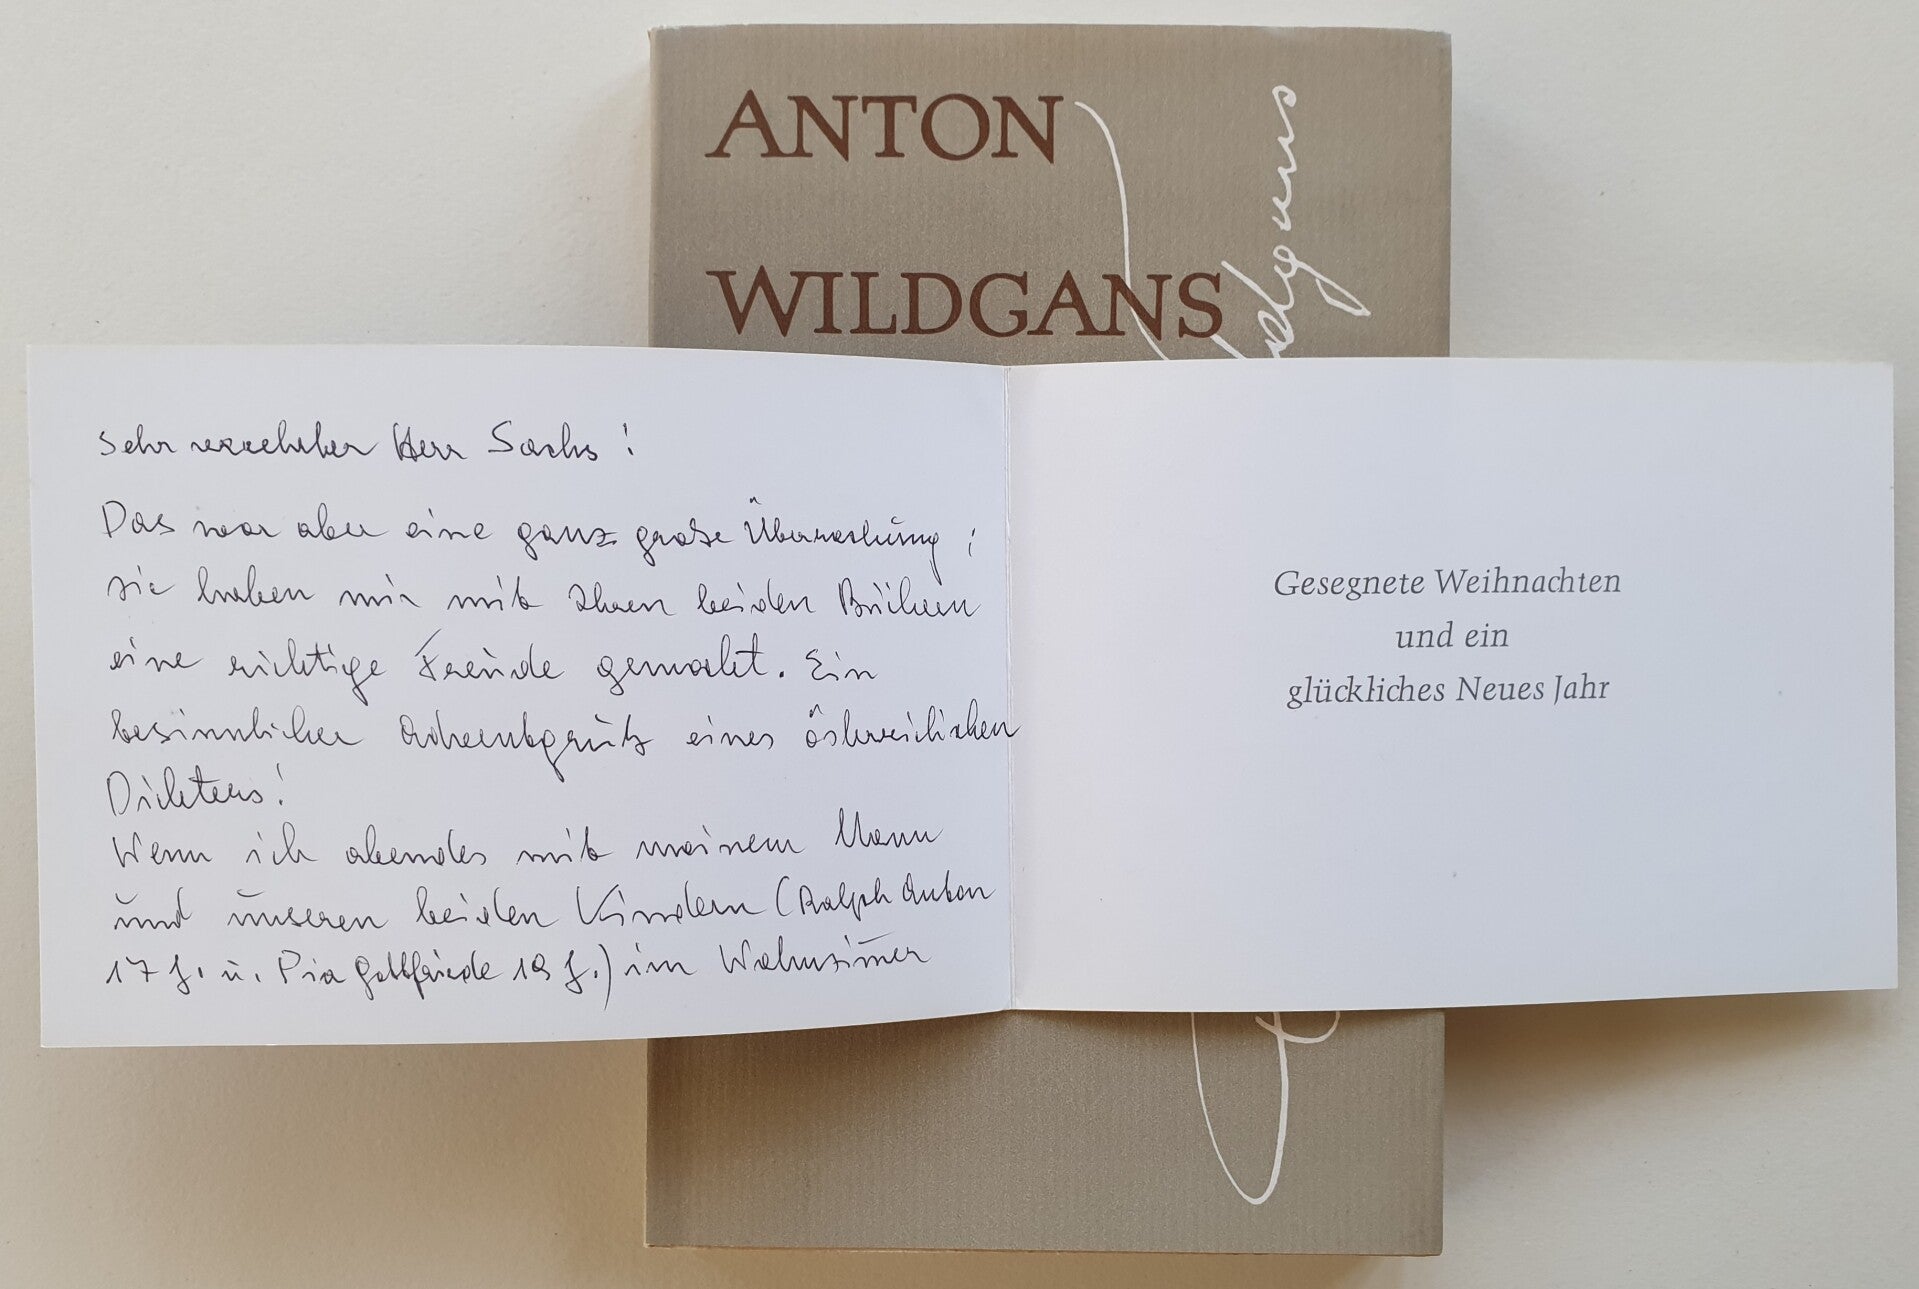 ANTON
WILDGANS
Wildgans
Sehr verehrter Herr Sachs!
Das war aber eine ganz große Überraschung;
sie haben mir mit Ihren beiden Büchern
eine richtige Freude gemacht. Ein
besinnlicher Adventgruß eines österreichischen
Dichters!
Wenn ich abends mit meinem Mann
und unseren beiden Kindern (Ralph Anton
17 J. u. Pia Gottfriede 19 J.) im Wohnzimmer
Gesegnete Weihnachten
und ein
glückliches Neues Jahr